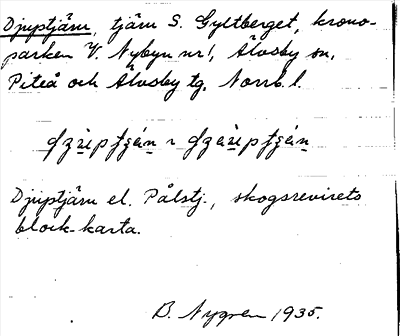 Djuptjärn, tjärn S. Gyltberget, krono-
parken V. Nybyn nr 1, Älvsby sn,
Piteå och Älvsby tg. Norrb. l.
Djuptjärn el. Pålstj., skogsrevirets
block-karta.
B. Nygren 1935.